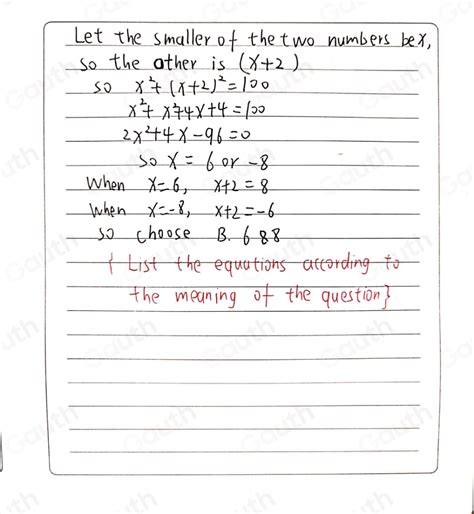 Let the smaller of the two numbers be x,
so the other is (x+2)
so x²+(x+2)²=100
x²+x²+4x+4=100
2x²+4x-96=0
so x=6 or -8
When x=6, x+2=8
When x=-8, x+2=-6
so choose B. 6 & 8
{List the equations according to
the meaning of the question}